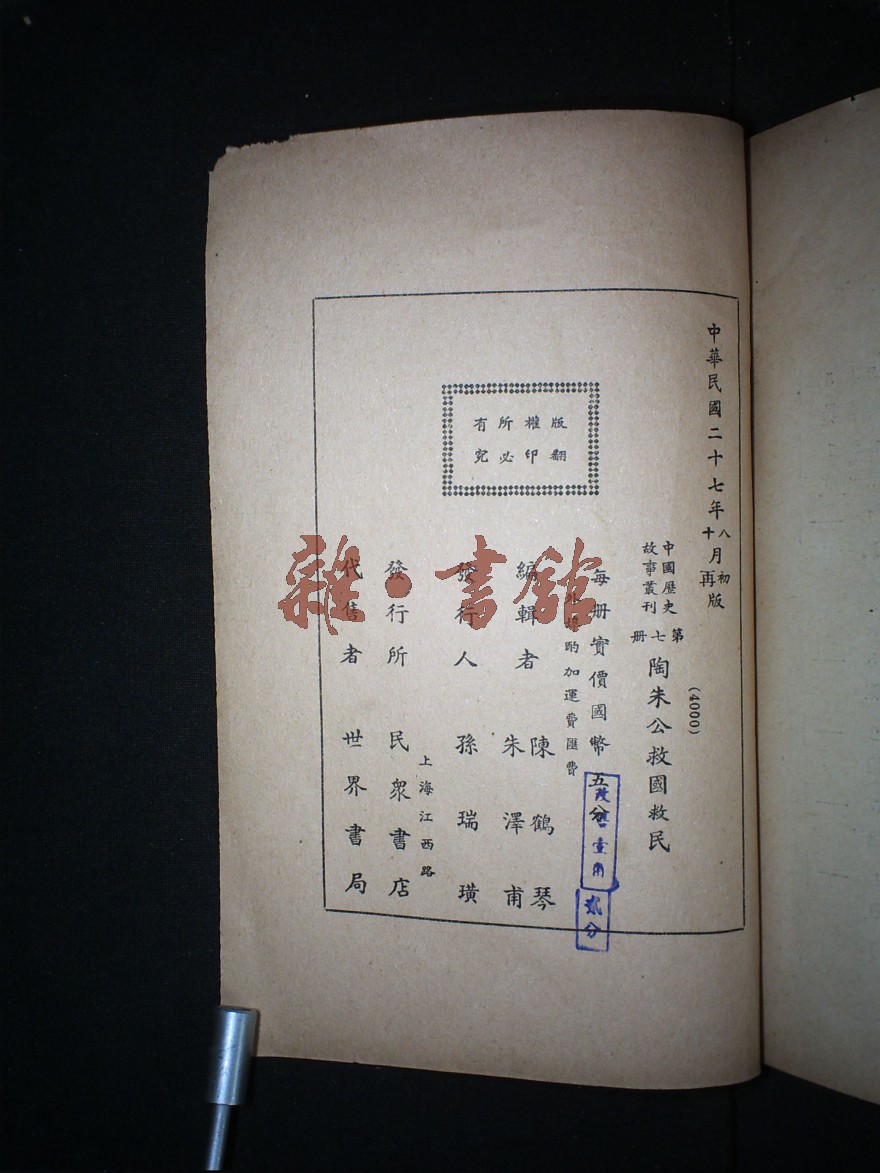 中華民國二十七年八月初版
十月再版
(4000)
中國歷史
故事叢刊
第七册
陶朱公救國救民
每册實價國幣五分
改售壹角
貳分
外埠酌加運費匯費
編輯者
陳鶴琴
朱澤甫
發行人 孫瑞璜
上海江西路
發行所 民衆書店
代售者 世界書局
版權所有
翻印必究
雜·書館